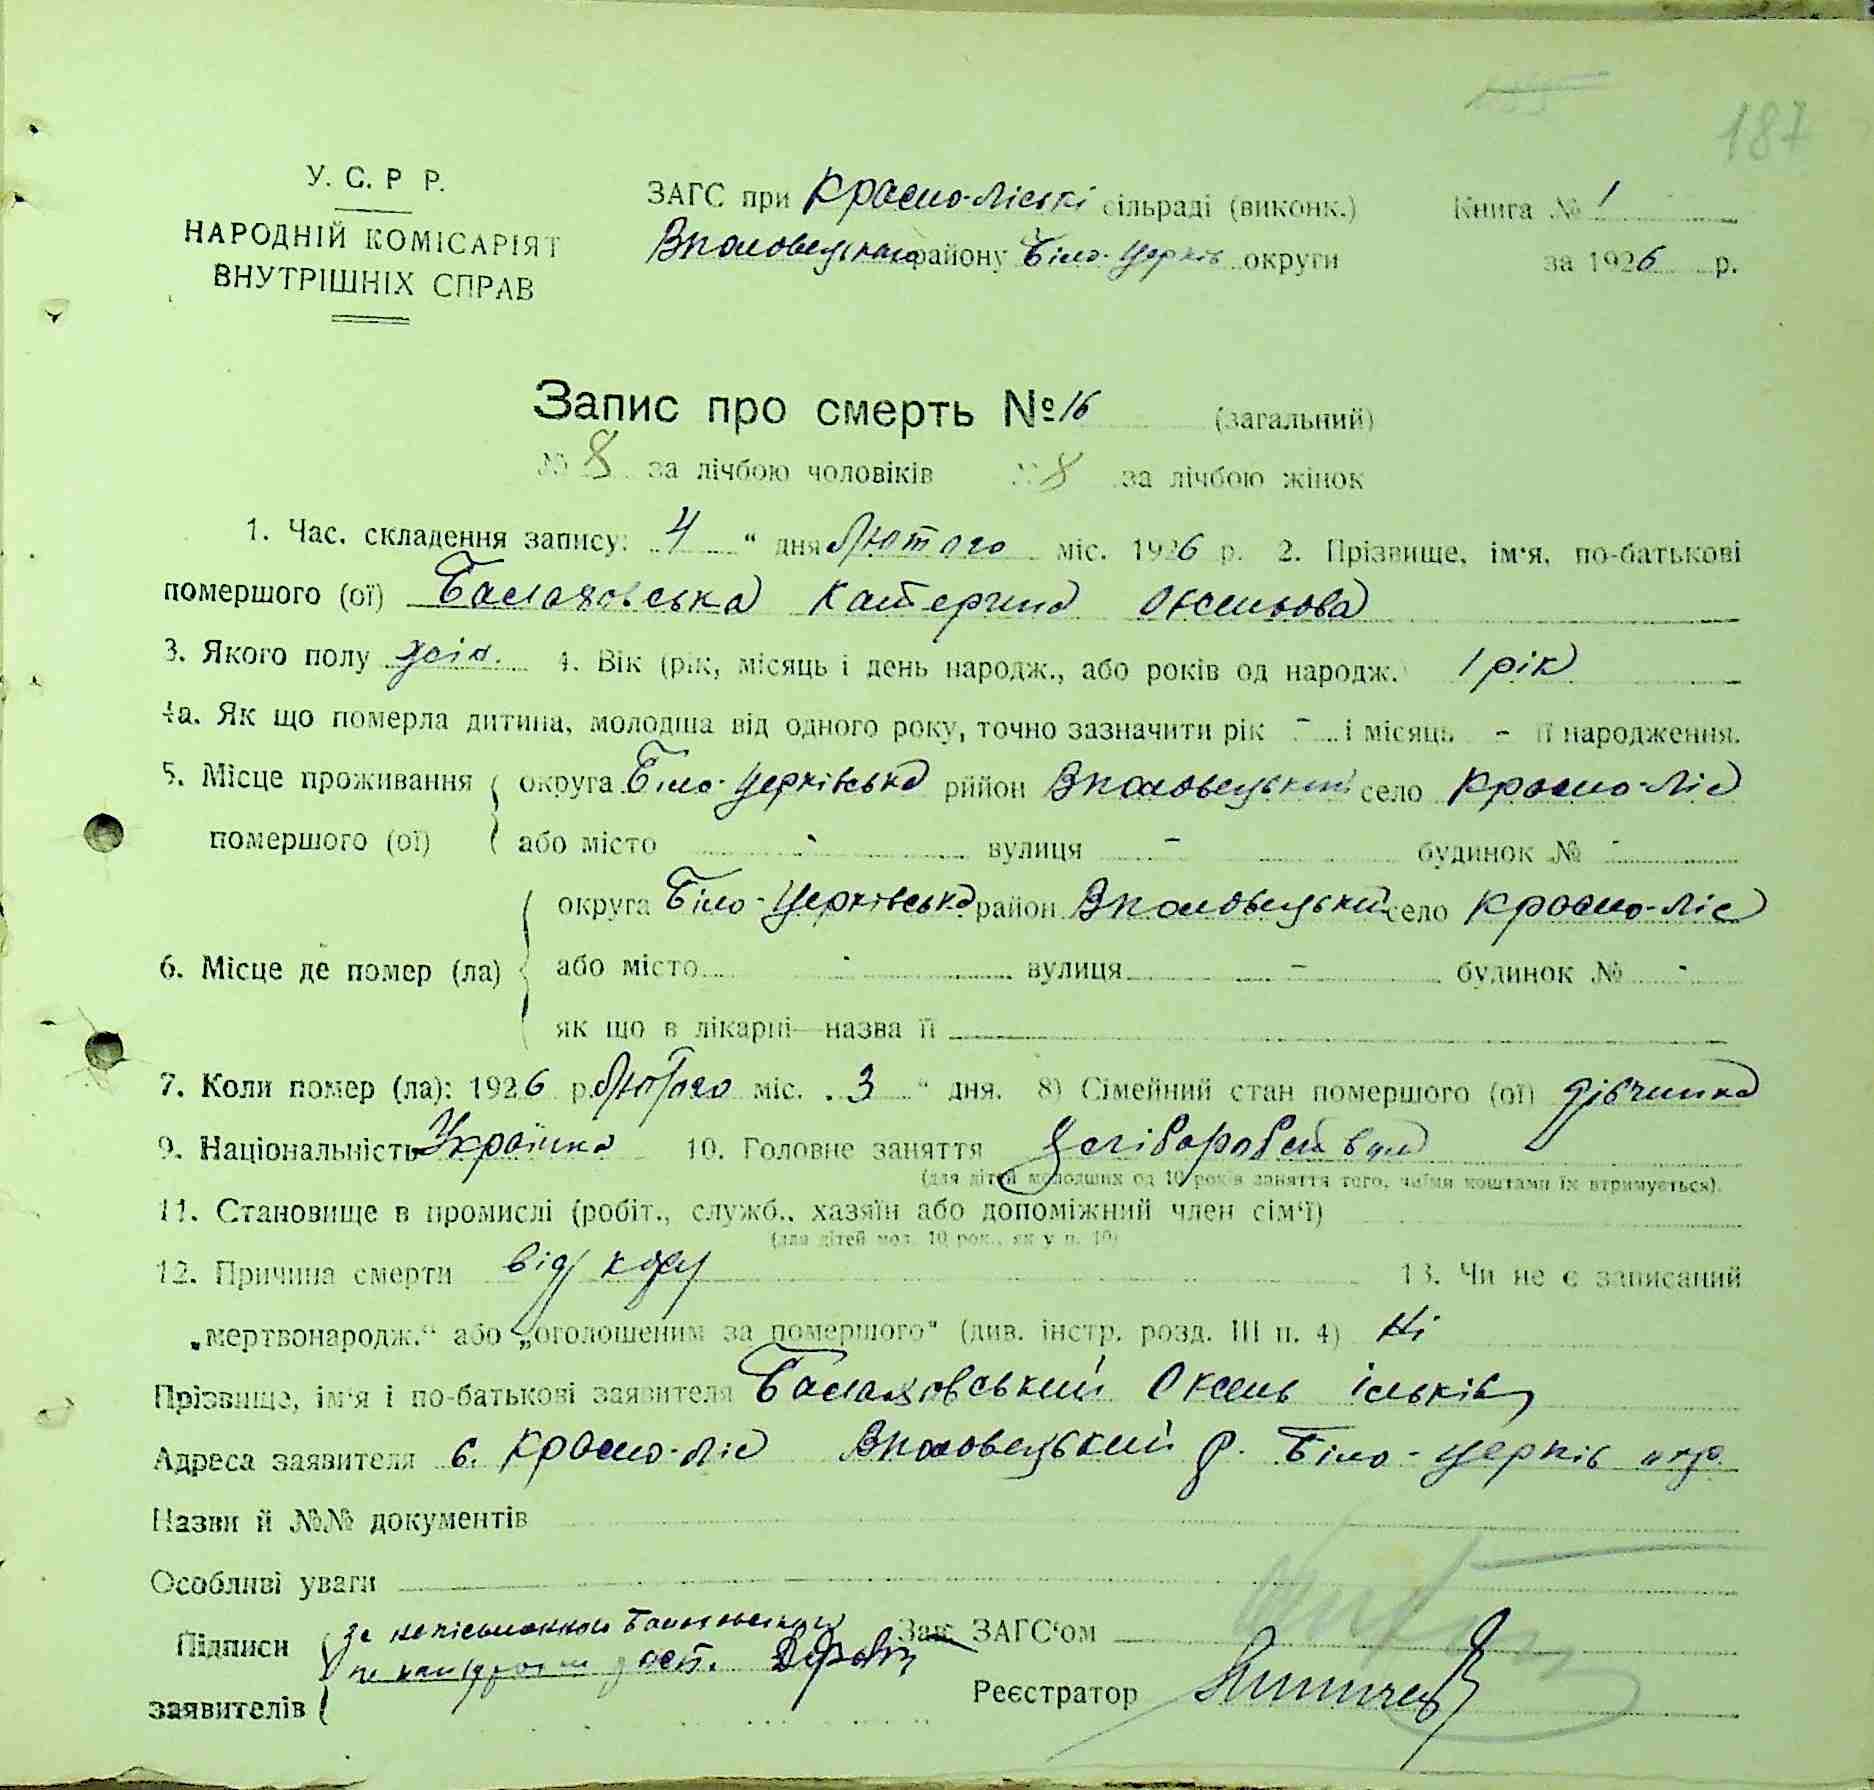 187
У. С. Р Р.
НАРОДНІЙ КОМІСАРІЯТ
ВНУТРІШНІХ СПРАВ
ЗАГС при Красно-Ліські сільраді (виконк.) Книга № 1
району Біло-Церків округи за 1926 р.
Запис про смерть № 16 (загальний)
№ 8 за лічбою чоловіків № 8 за лічбою жінок
1. Час. складення запису: 4 " дня Лютого міс. 1926 р. 2. Прізвище, ім'я, по-батькові
помершого (ої) Балаховська Катерина Оксенова
3. Якого полу жін. 4. Вік (рік, місяць і день народж., або років од народж.) 1 рік
4а. Як що померла дитина, молодша від одного року, точно зазначити рік - і місяць - її народження.
5. Місце проживання округа Біло-Церківська рийон Вполовецький село Красно-Ліс
помершого (ої) або місто - вулиця - будинок № -
округа Біло-Церківська район Вполовецький село Красно-Ліс
6. Місце де помер (ла) або місто - вулиця - будинок № -
як що в лікарні—назва її
7. Коли помер (ла): 1926 р. Лютого міс. 3 " дня. 8) Сімейний стан помершого (ої) дівчинка
9. Національність Українка 10. Головне заняття
(для дітей молодших од 10 років заняття того, чиїми коштами їх втримується).
11. Становище в промислі (робіт., служб., хазяїн або допоміжний член сім'ї)
(для дітей мол. 10 рок., як у п. 10)
12. Причина смерти від кору 13. Чи не є записаний
„мертвонародж." або „оголошеним за помершого" (див. інстр. розд. III п. 4) Ні
Прізвище, ім'я і по-батькові заявителя Балаховський Оксень Ільків
Адреса заявителя с. Красно-Ліс Вполовецький р. Біло-Церків окр.
Назви й №№ документів
Особливі уваги
Підписи за Зав. ЗАГС'ом
заявителів Реєстратор